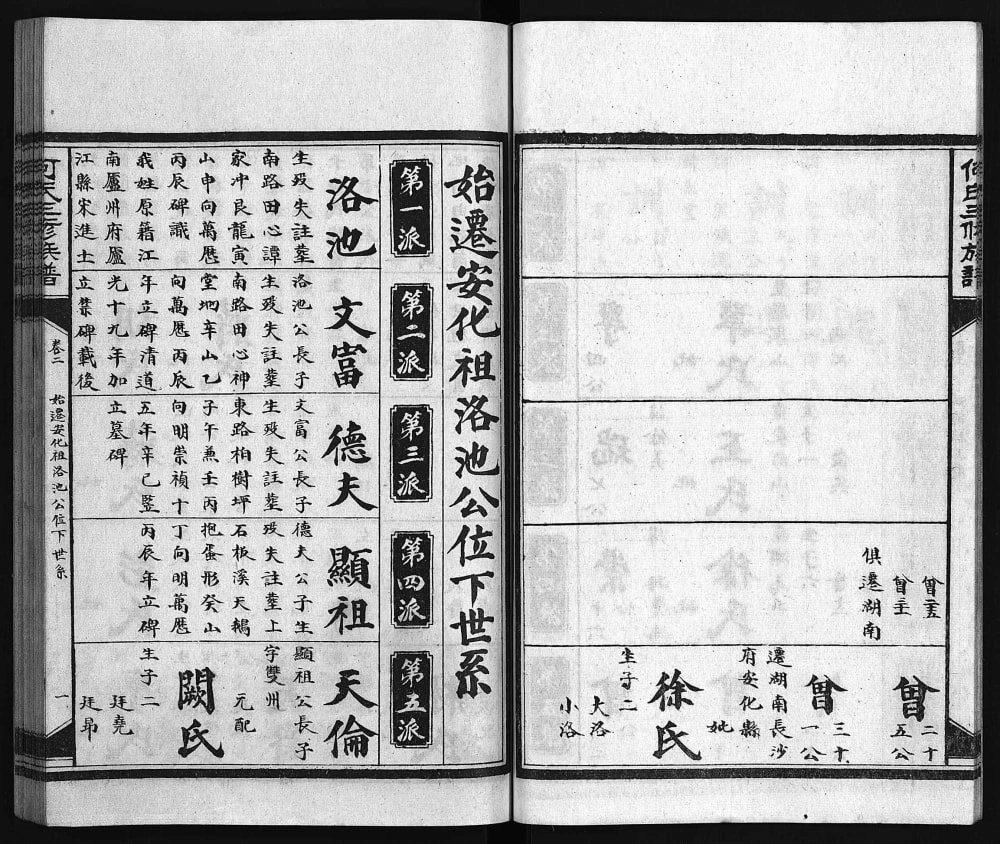 何氏三修族譜
曾五
曾主
俱遷湖南
曾
二十
五公
曾
三十
一公
遷湖南長沙
府安化縣
妣
徐氏
生子二
大洛
小洛
始遷安化祖洛池公位下世系
第一派
第二派
第三派
第四派
第五派
洛池
生歿失註葬
南路田心譚
家冲艮龍寅
山申向萬歷
丙辰碑識
我姓原籍江
南廬州府廬
江縣宋進士
文富
洛池公長子
生歿失註葬
南路田心神
堂地辛山乙
向萬歷丙辰
年立碑清道
光十九年加
立禁碑載後
德夫
文富公長子
生歿失註葬
東路柏樹坪
子午兼壬丙
向明崇禎十
五年辛已竪
立墓碑
顯祖
德夫公子生
歿失註葬上
石板溪天鵝
抱蛋形癸山
丁向明萬歷
丙辰年立碑
天倫
顯祖公長子
字雙州
元配
闕氏
生子二
廷堯
廷昂
何氏三修族譜
卷二
始遷安化祖洛池公位下世系
一